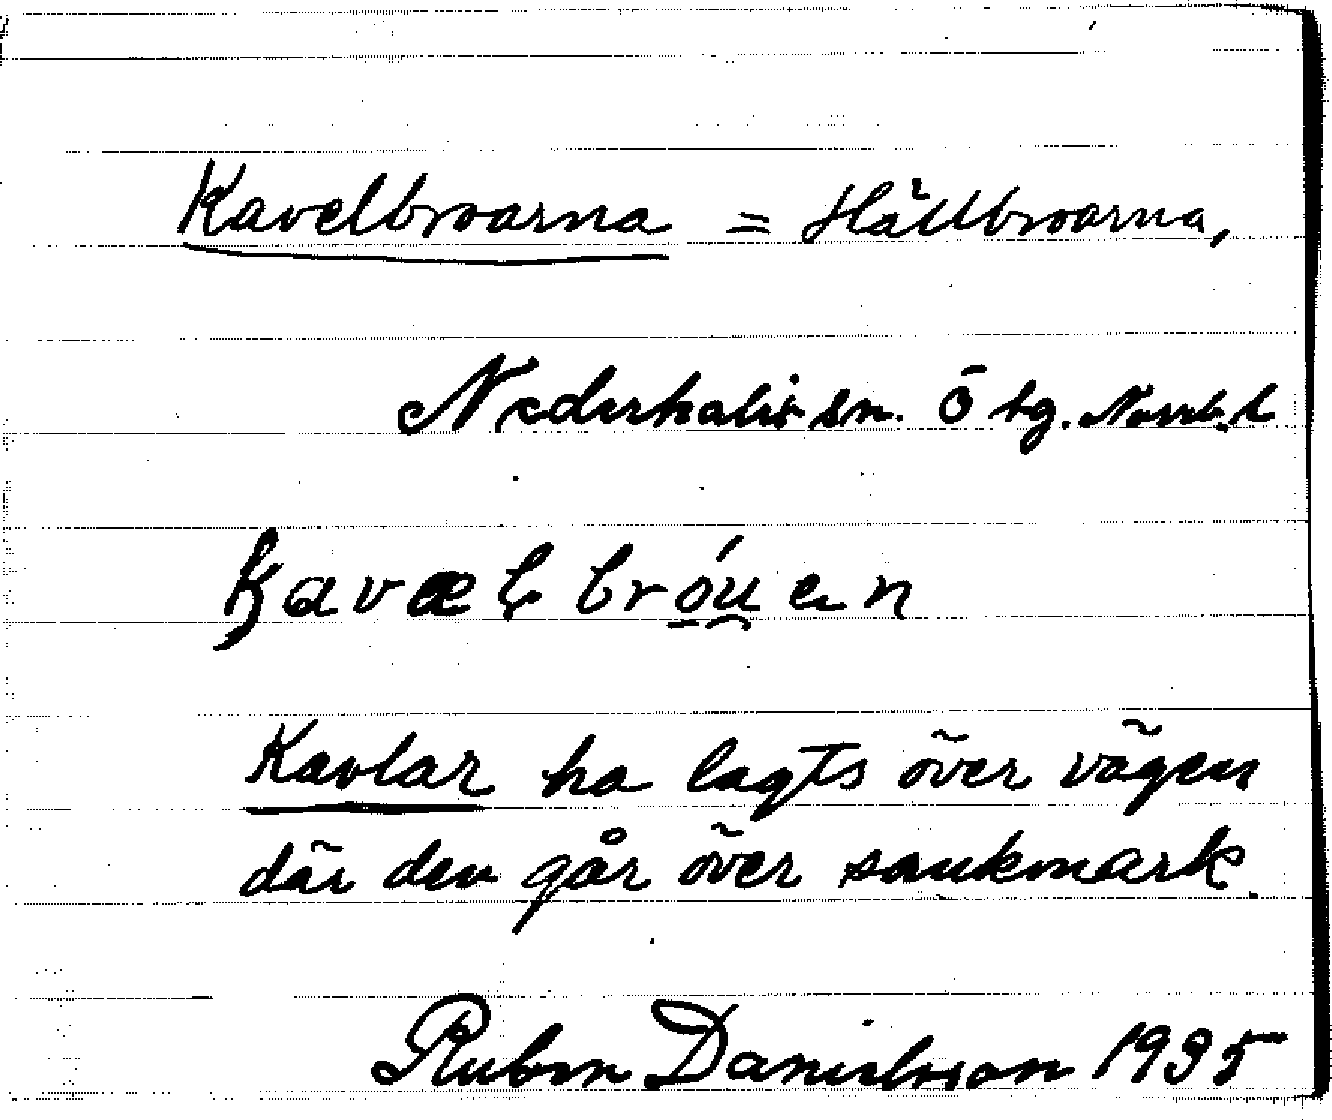 Kavelbroarna = Hällbroarna,
Nederkalix sn. Ö bg. Norrb. l
Kavæl bróuen
Kavlar ha lagts över vägen
där den går över sankmark.
Ruben Danielsson 1935